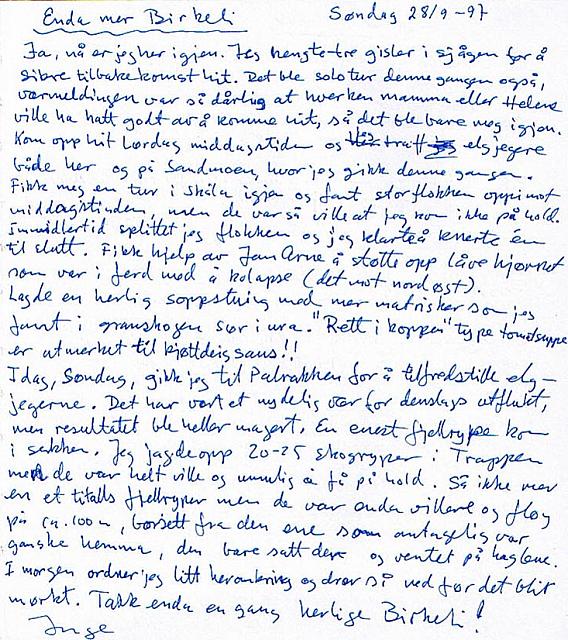 Enda mer Birkeli Søndag 28/9-97
Ja, nå er jeg her igjen. Jeg hengte tre gisler i sjågen for å
sikre tilbakekomst hit. Det ble solotur denne gangen også,
værmeldingen var så dårlig at hverken mamma eller Helene
ville ha hatt godt av å komme hit, så det ble bare meg igjen.
Kom opp hit Lørdag middagstiden og traff elgjegere
både her og på Sandmoen, hvor jeg gikk denne gangen.
Fikk meg en tur i Skåla igjen og fant storflokken opp imot
middagstinden, men de var så ville at jeg kom ikke på hold.
Immidlertid splittet jeg flokken og jeg klarte å knerte én
til slutt. Fikk hjelp av Jan Arne å støtte opp låvehjørnet
som var i ferd med å kolapse (det mot nordøst).
Lagde en herlig soppstuing med mer matrisker som jeg
fant i granskogen sør i ura. "Rett i koppen" type tomatsuppe
er utmerket til kjøttdeigsaus!!
Idag, Søndag, gikk jeg til Palrakken for å tilfredstille elg-
jegerne. Det har vært et nydelig vær for denslags utflukt,
men resultatet ble heller magert. En enest fjellrype kom
i sekken. Jeg jagde opp 20-25 skogryper i Trappen
men de var helt ville og umulig å få på hold. Så ikke mer
en et titalls fjellryper men de var enda villere og fløy
på ca. 100 m, borsett fra den ene som antagelig var
ganske hemma, den bare satt der og ventet på haglene.
I morgen ordner jeg litt heromkring og drar så ned før det blit
mørkt. Takk enda en gang herlige Birkeli!
Inge